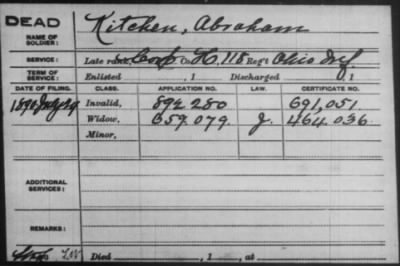 DEAD
NAME OF SOLDIER: Kitchen, Abraham
SERVICE: Late rank, Corp Co. H, 118 Reg't Ohio Inf
TERM OF SERVICE: Enlisted , 1 Discharged , 1
DATE OF FILING. CLASS. APPLICATION NO. LAW. CERTIFICATE NO.
1890 July 29 Invalid, 892 280 691,051
Widow, 659.079. J. 464.036.
Minor,
ADDITIONAL SERVICES:
REMARKS:
Died , 1 , at